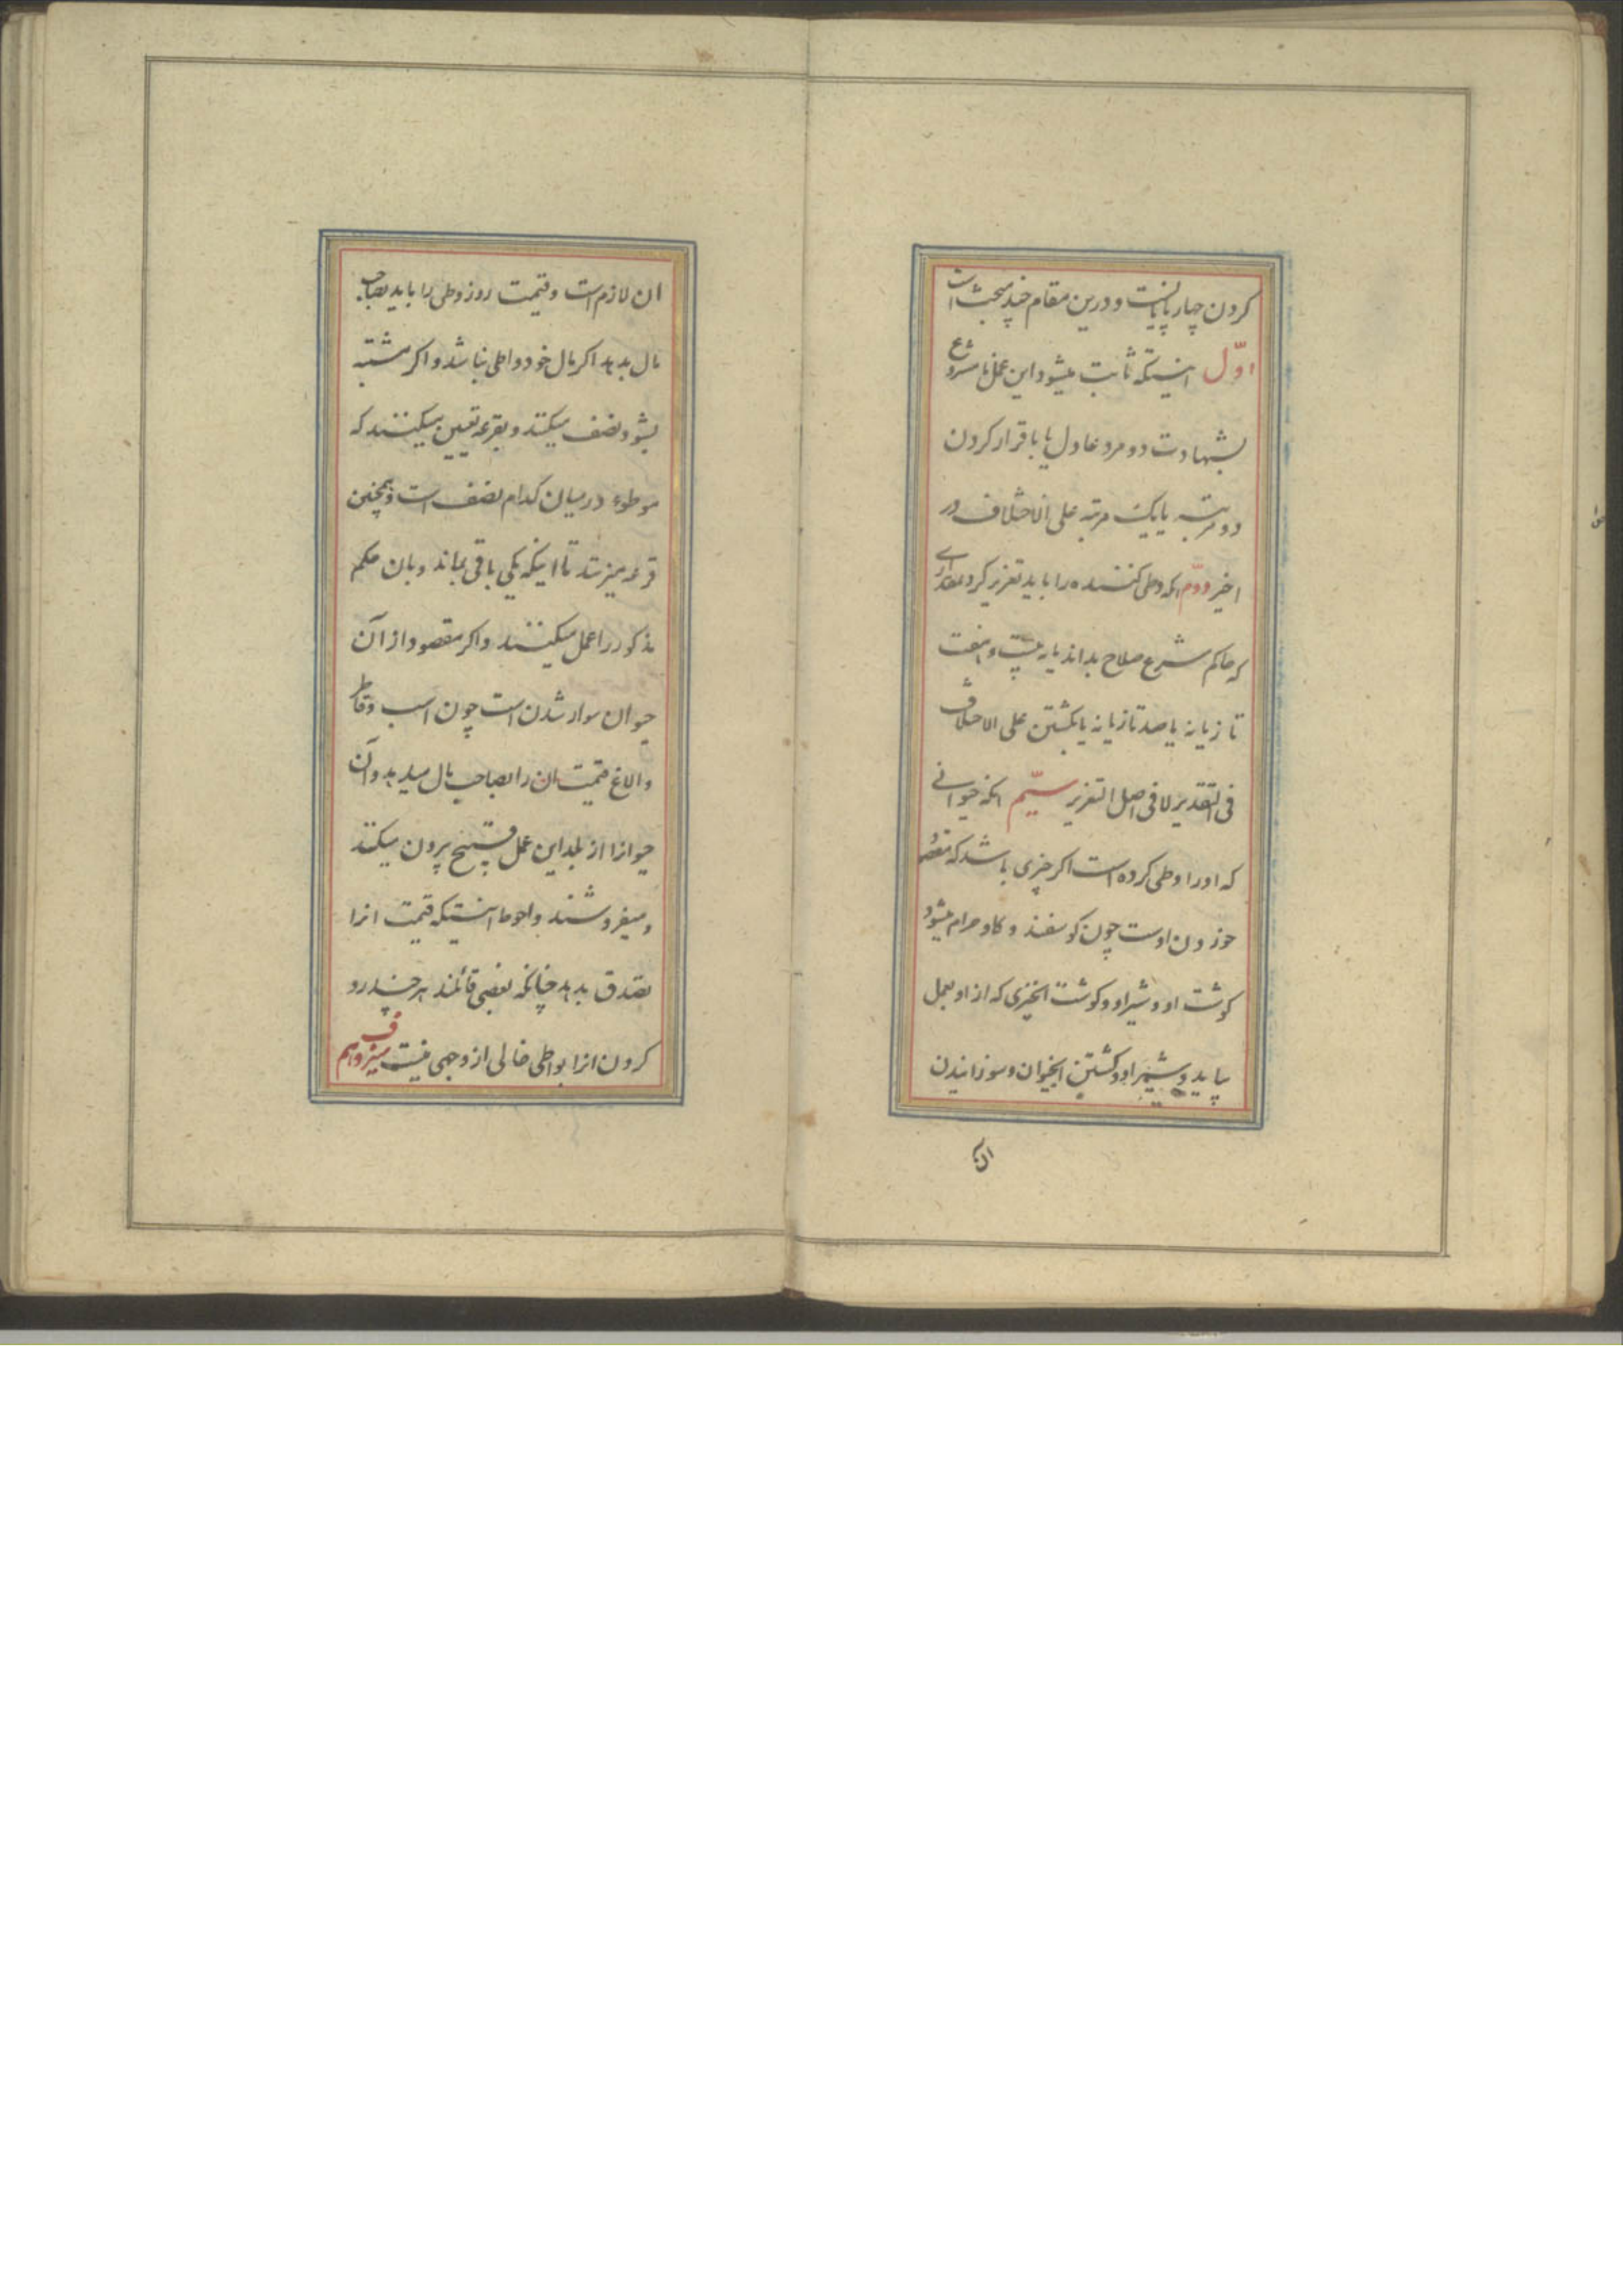 کردن چهار پایانست و درین مقام چند مبحث است
اوّل اینستکه ثابت میشود این عمل نامشروع
بشهادت دو مرد عادل یا باقرار کردن
دو مرتبه یا یک مرتبه علی الاختلاف در
اخیر دوّم انکه وطی کننده را باید تعزیر کرد بمقداری
که حاکم شرع صلاح بداند یا بیست و هفت
تازیانه یا صد تازیانه یا بکشتن علی الاختلاف
فی التقدیر لا فی اصل التعزیر سیّم انکه حیوانی
که او را وطی کرده است اکر چیزی باشد که مقصود
خوردن اوست چون کوسفند و کاو حرام میشود
کوشت او و شیر او و کوشت انچیزی که از او بعمل
بیاید و شیر او و کشتن انحیوان و سوزانیدن
ان
ان لازم است و قیمت روز وطی را باید بصاحب
مال بدهد اکر مال خود واطی نباشد و اکر مشتبه
بشود نصف میکنند و بقرعه تعیین میکنند که
موطوء در میان کدام نصف است و همچنین
قرعه میزنند تا اینکه یکی باقی بماند و بان حکم
مذکور را عمل میکنند و اکر مقصود از آن
حیوان سوار شدن است چون اسب و قاطر
و الاغ قیمت ان را بصاحب مال میدهد و آن
حیوانرا از بلد این عمل قبیح بیرون میکنند
و میفروشند و احوط اینستیکه قیمت انرا
تصدق بدهد چنانکه بعضی قائلند هر چند رد
کردن انرا بواطی خالی از وجهی نیست